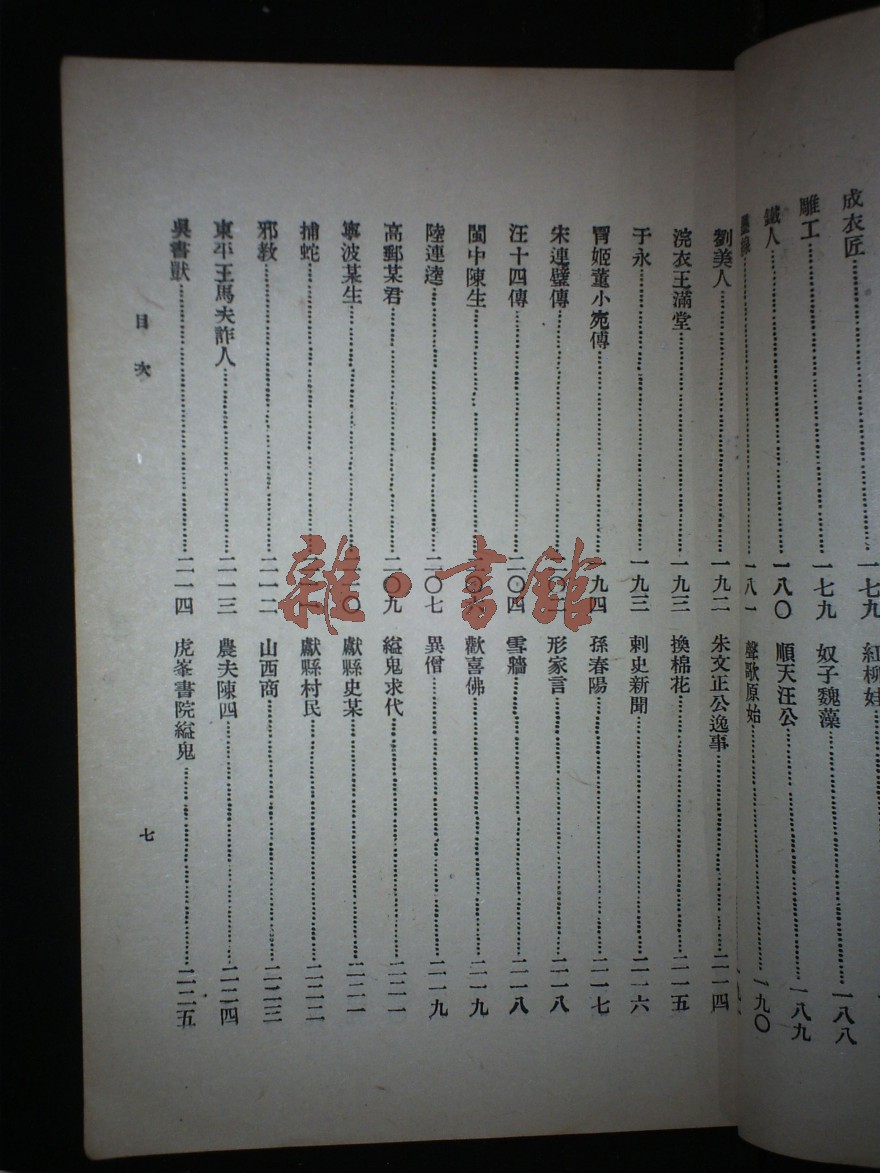 成衣匠 一七九 紅柳娃
雕工 一七九 奴子魏藻 一八八
鐵人 一八〇 順天汪公 一八九
一八一 聲歌原始 一九〇
劉美人 一九二 朱文正公逸事 二一四
浣衣王滿堂 一九三 換棉花 二一五
于永 一九三 刺史新聞 二一六
冒姬董小宛傳 一九四 孫春陽 二一七
宋連璧傳 形家言 二一八
汪十四傳 二〇四 雪牆 二一八
閩中陳生 二〇六 歡喜佛 二一九
陸連逵 二〇七 異僧 二一九
高郵某君 二〇九 縊鬼求代 二二一
寧波某生 二一〇 獻縣史某 二二一
捕蛇 獻縣村民 二二二
邪教 二一二 山西商 二二三
東平王馬夫詐人 二一三 農夫陳四 二二四
吳書獃 二一四 虎峯書院縊鬼 二二五
目次 七
雜·書館